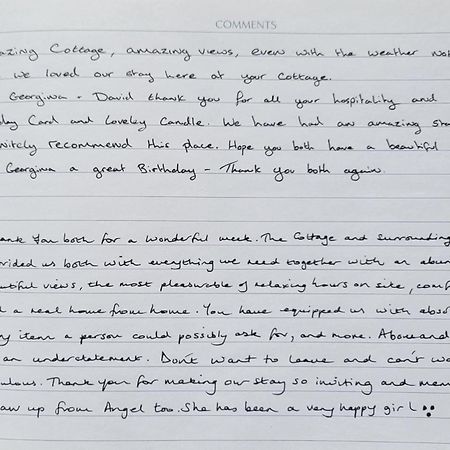 COMMENTS
azing Cottage, amazing views, even with the weather not
we loved our stay here at your cottage.
Georgina + David thank you for all your hospitality and
day Card and Loveley Candle. We have had an amazing sta
nitely recommend this place. Hope you both have a beautiful
Georgina a great Birthday - Thank you both again.
ank you both for a wonderful week. The Cottage and surrounding
vided us both with everything we need together with an abun
utiful views, the most pleasurable of relaxing hours on site, comf
d a real home from home. You have equipped us with abso
ry item a person could possibly ask for, and more. Above and
an understatement. Don't want to leave and can't wa
ulous. Thank you for making our stay so inviting and mem
aw up from Angel too. She has been a very happy girl